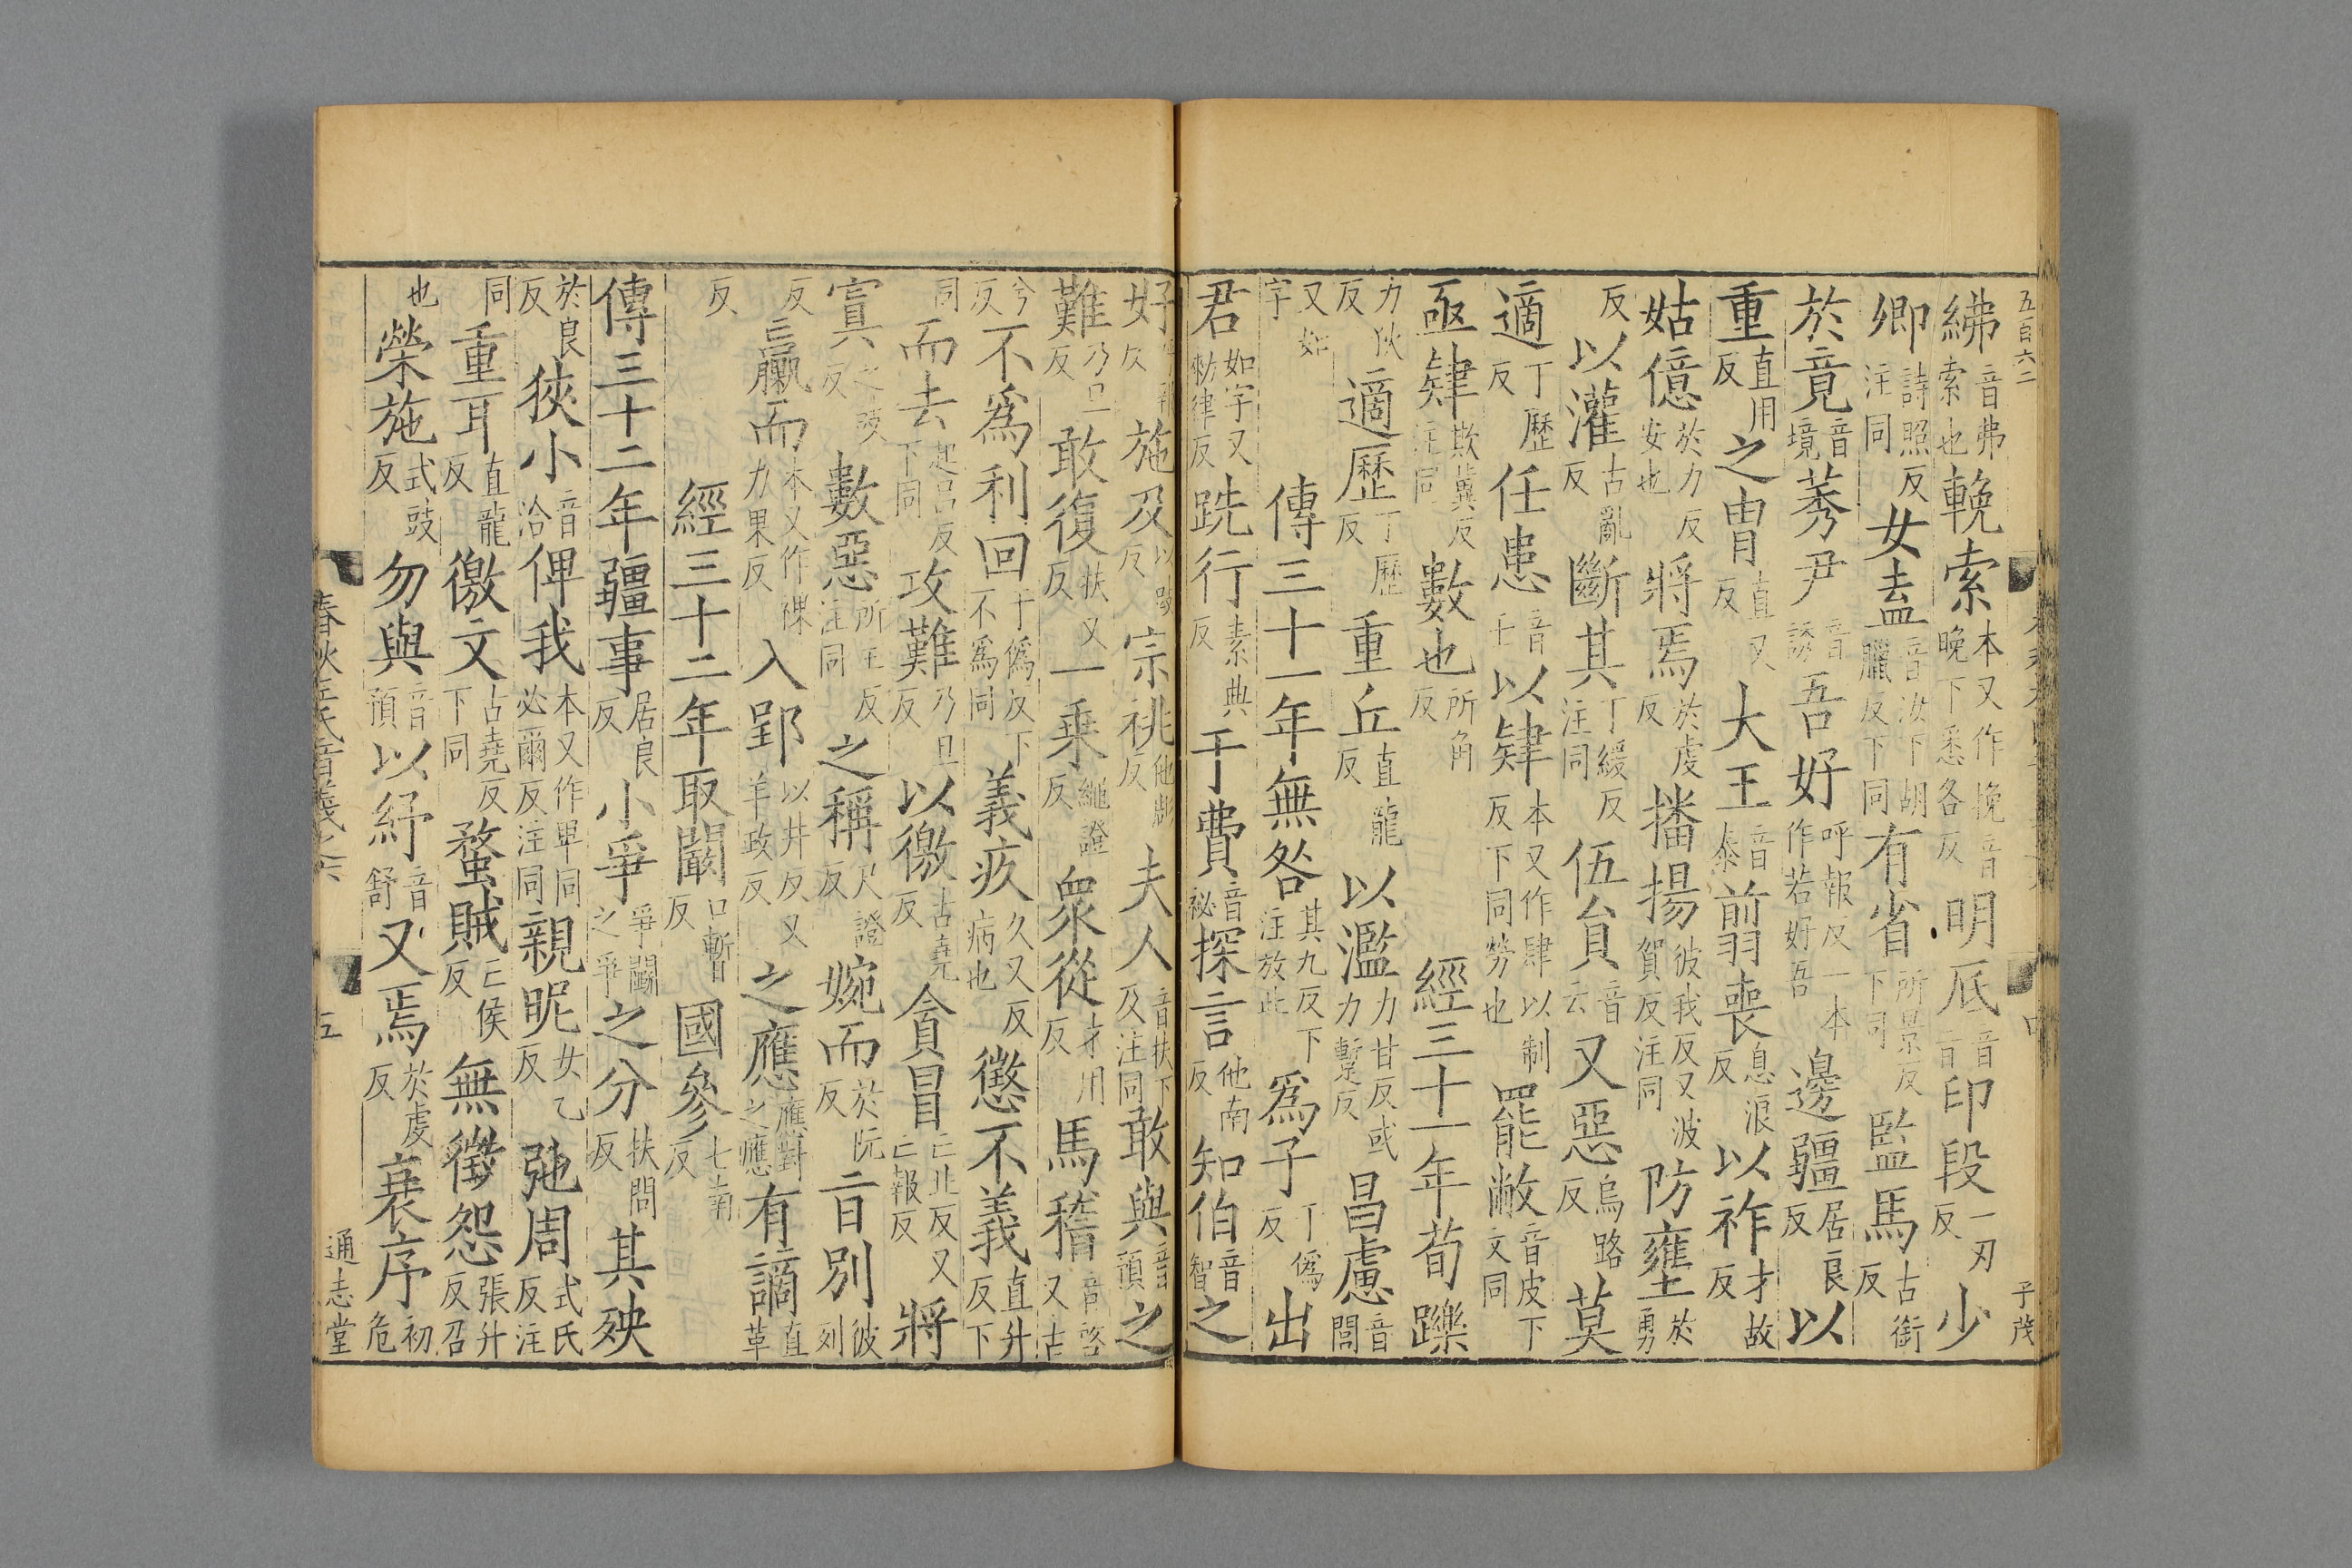 五百六二
紼音弗索也輓索本又作挽音晚下悉各反明底音旨印段一刃反少
卿詩照反注同女盍音汝下胡臘反下同有省所景反下同監馬古銜反
於竟音境莠尹音誘吾好呼報反一本作若好吾邊疆居良反以
重直用反之胄直又反大王音泰翦喪息浪反以祚才故反
姑億於力反安也將焉於虔反播揚彼我反又波賀反注同防壅於勇
反以灌古亂反斷其丁緩反注同伍員音云又惡烏路反莫
適丁歷反任患音壬以肄本又作肆以制反下同勞也罷敝音皮下文同
亟肄欺冀反注同數也所角反 經三十一年荀躒
力狄反適歷丁歷反重丘直龍反以濫力甘反或力蹔反昌慮音閭
又如字 傳三十一年無咎其九反下注放此爲子丁僞反出
君如字又勑律反跣行素典反于費音祕探言他南反知伯音智之
子茂
好反施及以豉反宗祧他彫反夫人音扶下及注同敢與音預之
難乃旦反敢復扶又反一乗繩證反衆從才用反馬稽音啓又古
兮反不爲利回于僞反下不爲同義疚久又反病也懲不義直升反下
同而去起呂反下同攻難乃旦反以徼古堯反貪冒亡北反又亡報反將
寘之豉反數惡所主反注同之稱尺證反婉而於阮反音別彼列
反羸而本又作裸力果反入郢以井反又羊政反之應應對之應有謫直革
反 經三十二年取闞口暫反國參七南反
傳三十二年疆事居良反小爭爭鬬之爭之分扶問反其殃
於良反狹小音洽俾我本又作卑同必爾反注同親昵女乙反弛周式氏反注
同重耳直龍反徼文古堯反下同蝥賊亡侯反無徵怨張升反召
也榮施式豉反勿與音預以紓音舒又焉於虔反衰序初危
春秋左氏音義之六
五
通志堂